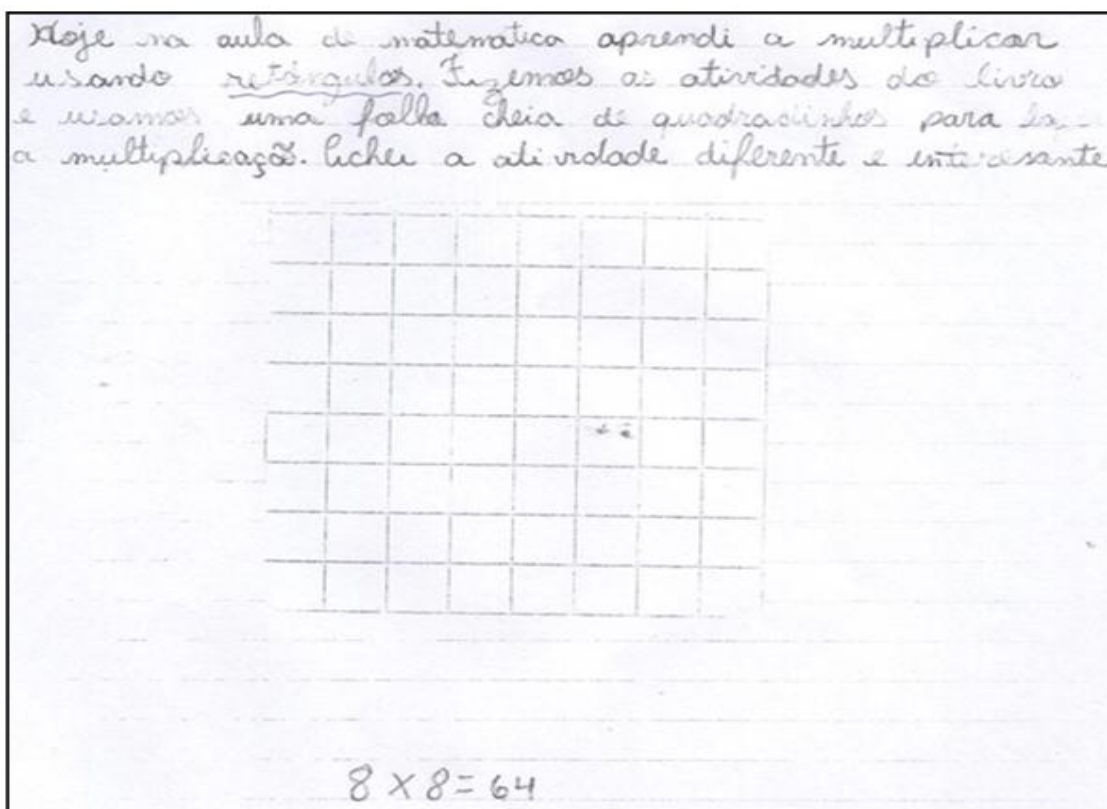 Hoje na aula de matematica aprendi a multiplicar
usando retângulos. Fizemos as atividades do livro
e usamos uma folha cheia de quadradinhos para
a multiplicação. Achei a atividade diferente e
8 x 8 = 64